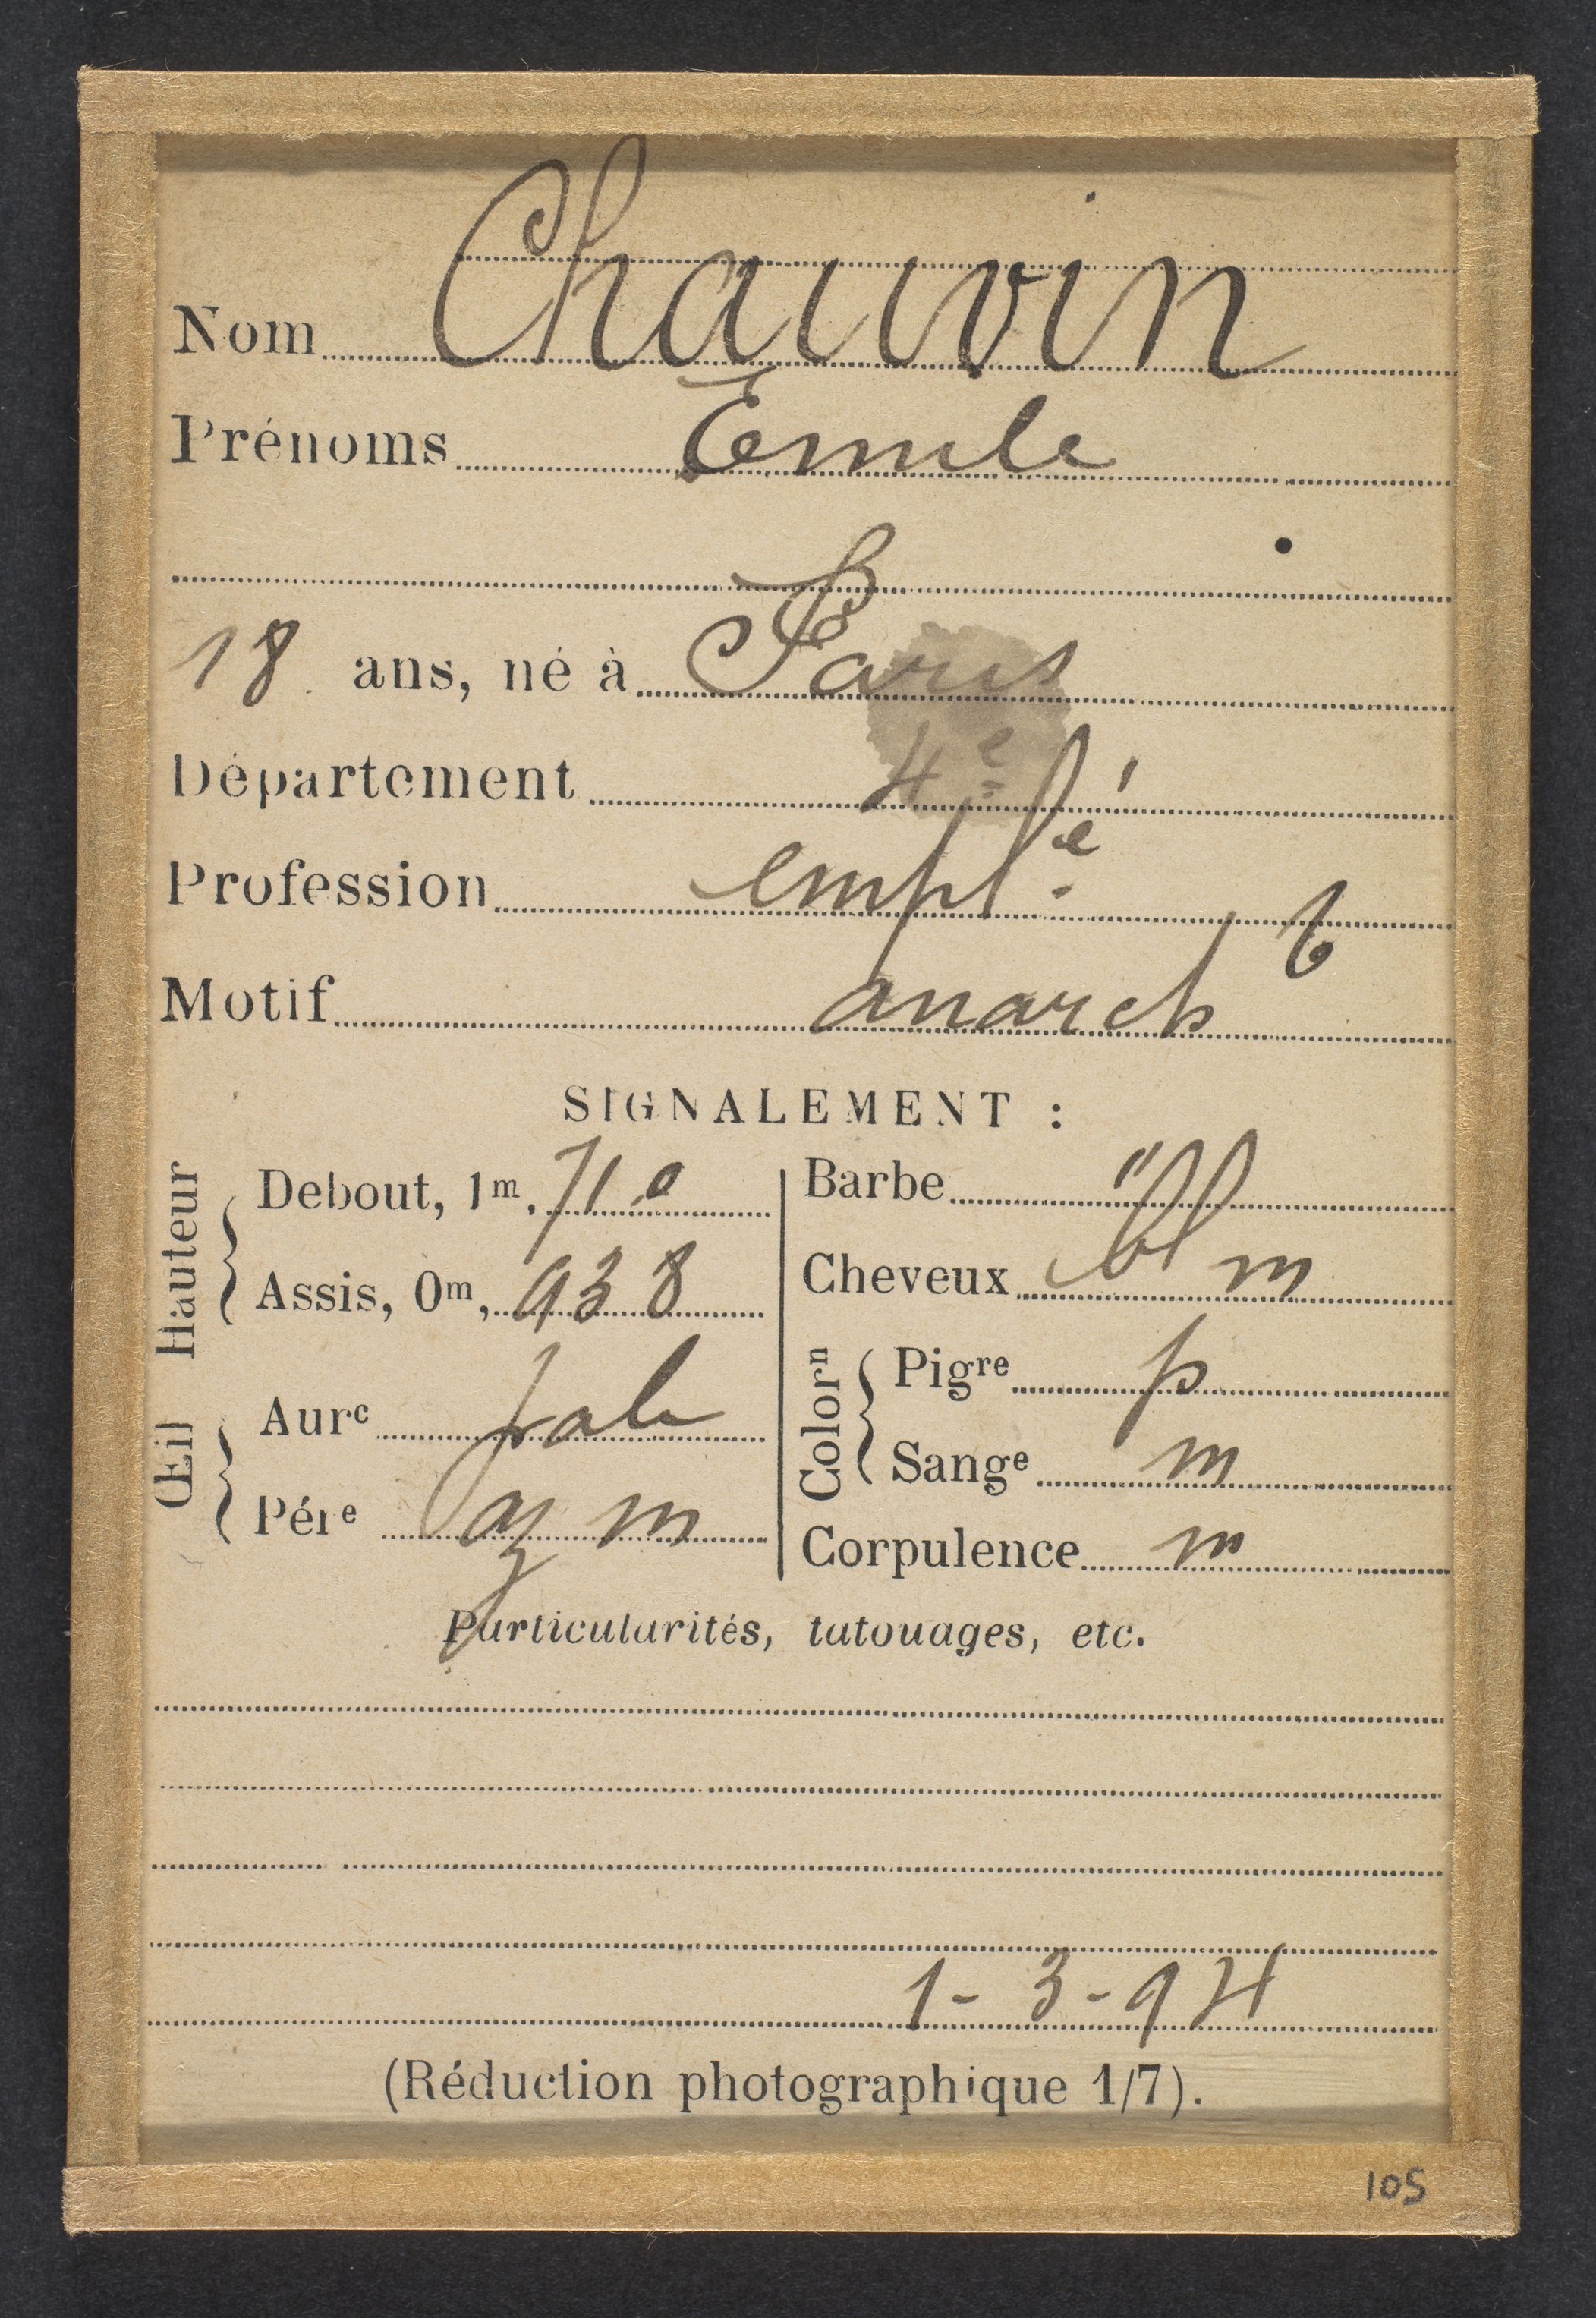 Nom Chauvin
Prénoms Emile
18 ans, né à Paris
Département 4e
Profession emplé
Motif anarch
SIGNALEMENT :
Hauteur
Debout, 1m, 71.0
Assis, 0m, 938
Œil
Aure
Pére az m
Barbe "
Cheveux bl m
Colorn
Pigre p
Sange m
Corpulence m
Particularités, tatouages, etc.
1-3-94
(Réduction photographique 1/7).
105